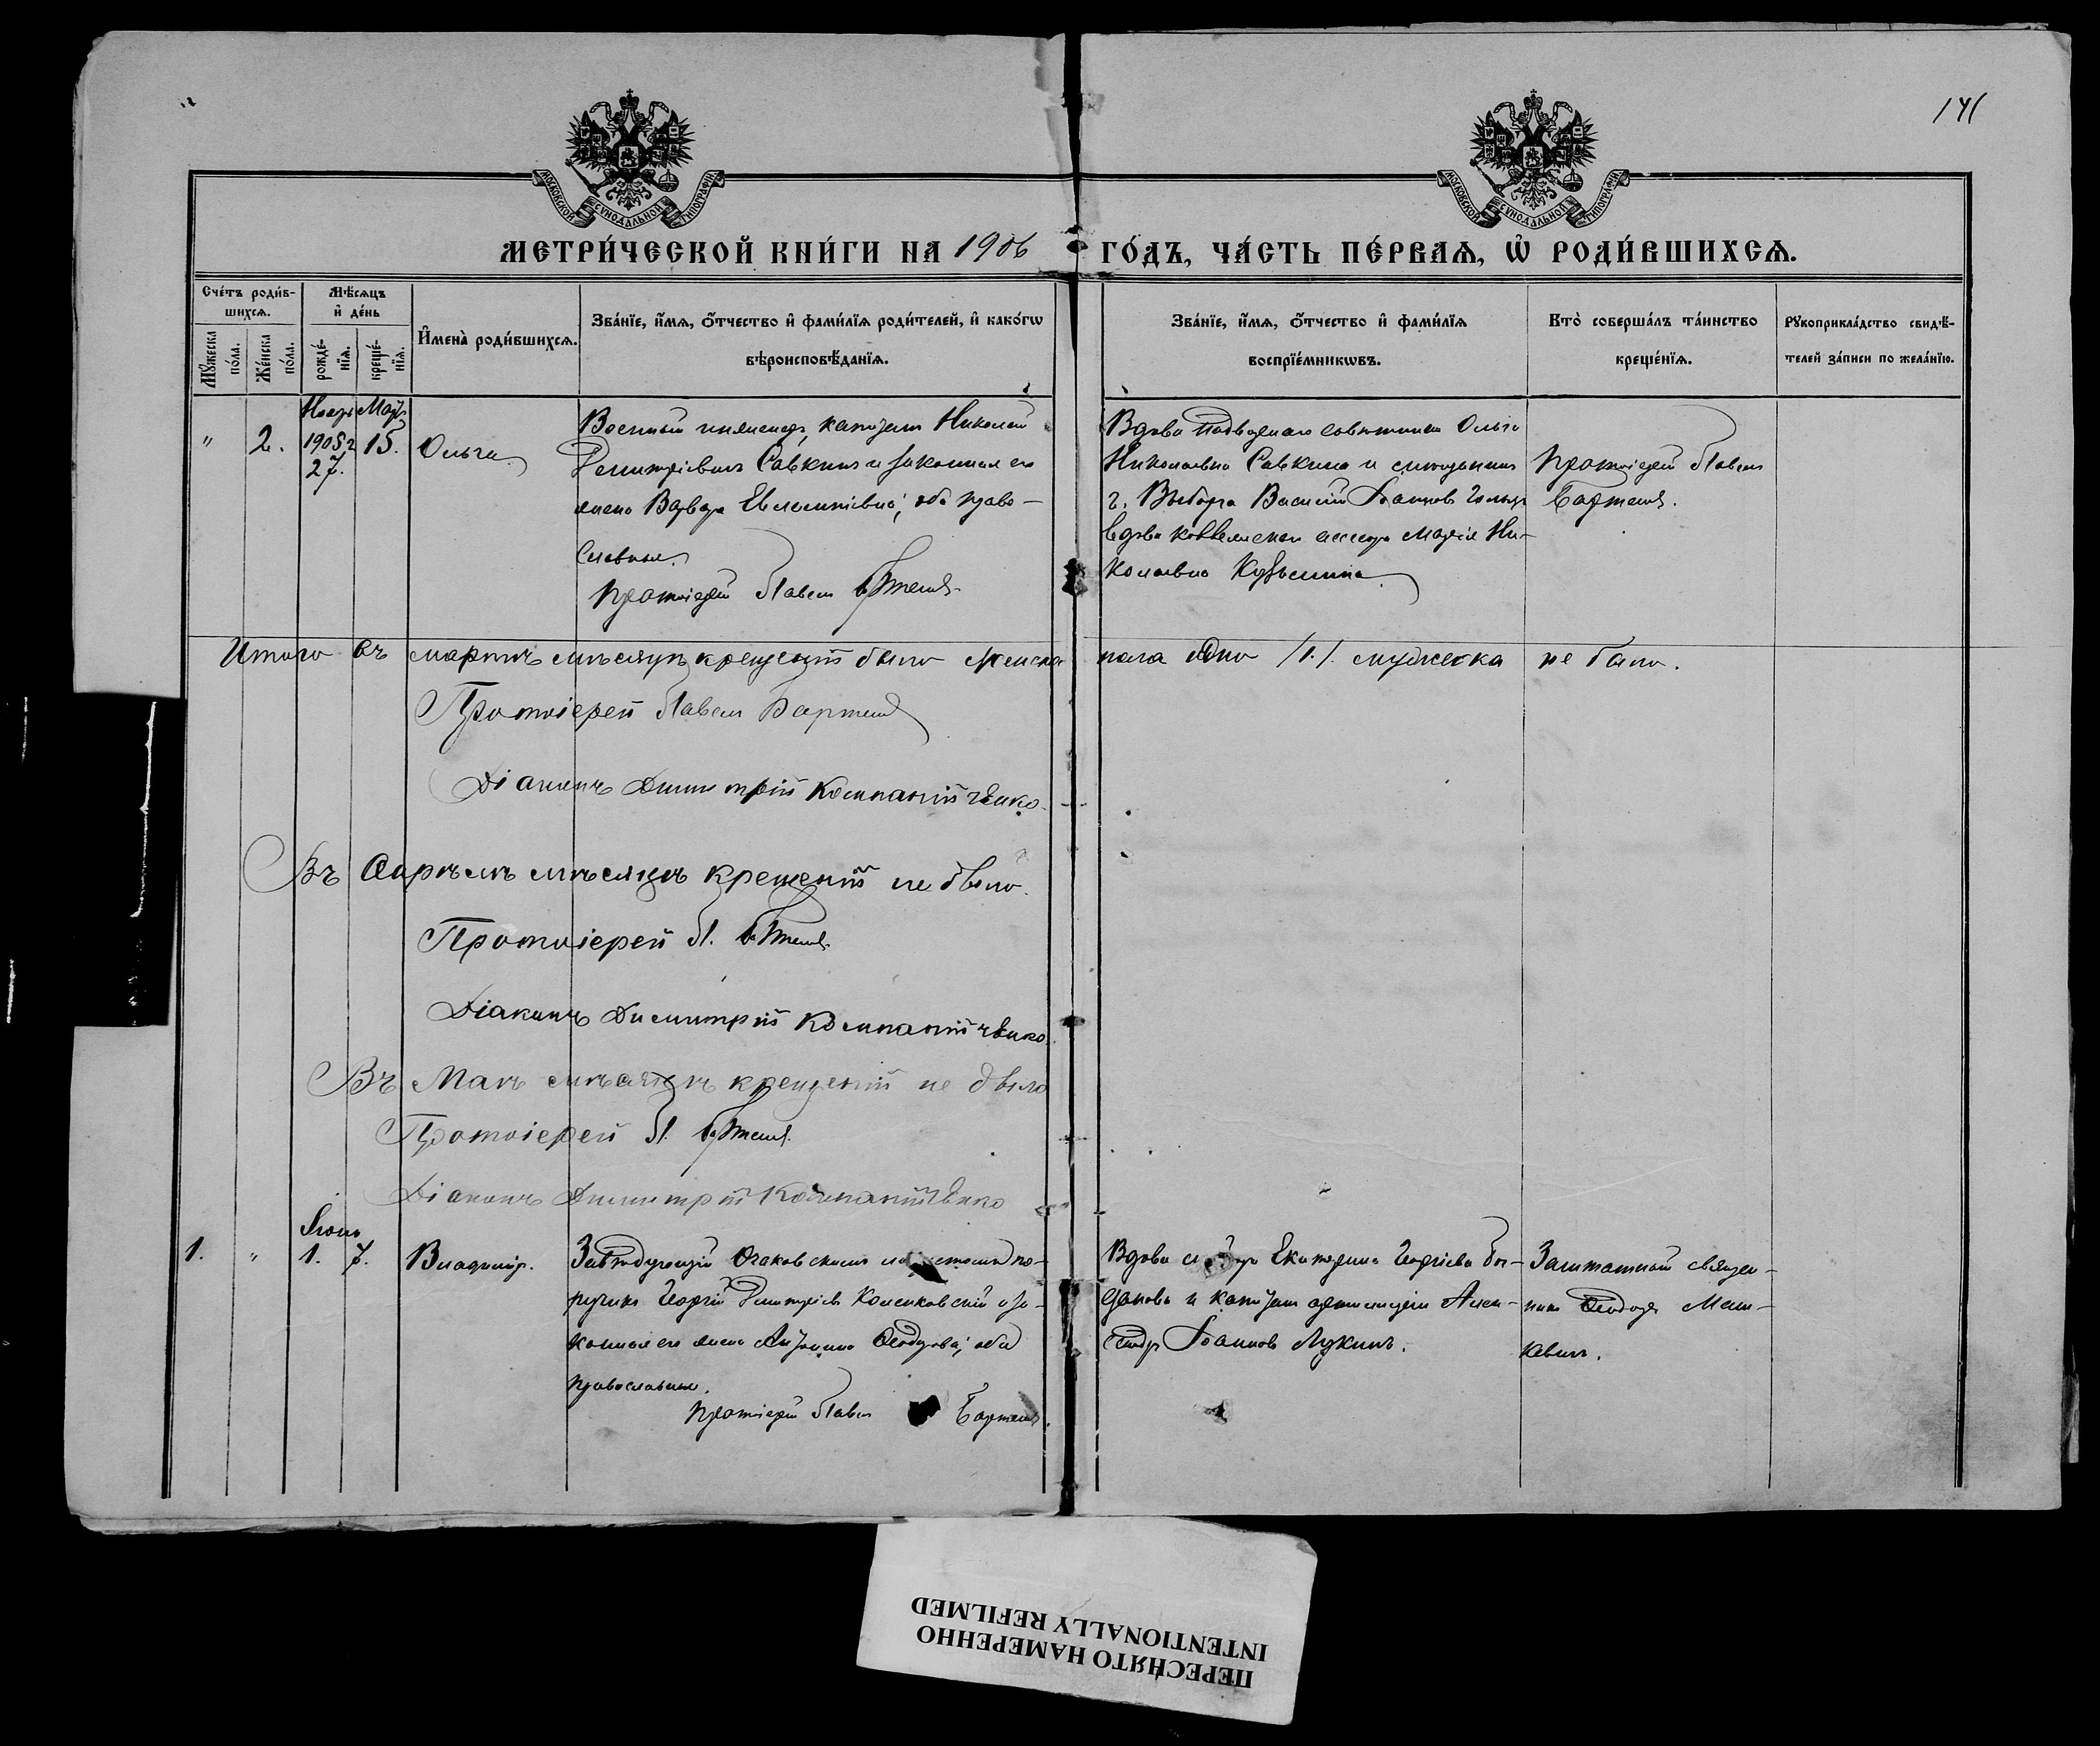 141
МОСКОВСКОЙ СѴНОДАЛЬНОЙ ТИПОГРАФІИ
МОСКОВСКОЙ СѴНОДАЛЬНОЙ ТИПОГРАФІИ
МЕТРИ́ЧЕСКОЙ КНИ́ГИ НА 1906 ГО́ДЪ, ЧА́СТЬ ПЕ́РВАѦ, Ѡ҆ РОДИ́ВШИХСѦ.
Сче́тъ роди́в-
шихсѧ.
Мѣ́сѧцъ
и҆ де́нь
Мꙋ́жеска по́ла.
Же́нска по́ла.
рожде́-
нїѧ.
креще́-
нїѧ.
И҆мена̀ роди́вшихсѧ.
Зва́нїе, и҆́мѧ, ѻ҆́тчество и҆ фами́лїѧ роди́телей, и҆ како́гѡ
вѣроисповѣ́данїѧ.
Зва́нїе, и҆́мѧ, ѻ҆́тчество и҆ фами́лїѧ
воспрїе́мникѡвъ.
Кто̀ соверша́лъ та́инство
креще́нїѧ.
Рꙋкоприкла́дство свидѣ́-
телей за́писи по жела́нїю.
" 2. Ноябр. 1905 г. 27. Март. 15. Ольга.
Военный инженеръ, капитанъ Николай
Димитріевичъ Савкинъ и законная его
жена Варвара Евлампіевна; оба право-
славные.
Протоіерей Павелъ
Вдова Надворнаго совѣтника Ольга
Николаевна Савкина и
г. Выборга Василій Іоаннов
вдова коллежскаго ассесора Марія Ни-
колаевна Кузьмина.
Протоіерей Павелъ
Бартенев.
Итого въ мартѣ мѣсяцѣ крещеній было женска пола одно /1./ мужеска не было.
Протоіерей Павелъ Бартенев
Діаконъ Димитрій Компанійченко.
Въ Апрѣлѣ мѣсяцѣ крещеній не было.
Протоіерей П. Бартенев.
Діаконъ Димитрій Компанійченко.
Въ Маѣ мѣсяцѣ крещеній не было
Протоіерей П. Бартенев.
Діаконъ Димитрій Компанійченко
1. " Іюнь 1. 7. Владиміръ.
Завѣдующій Очаковскимъ по-
ручикъ Георгій Димитріев и за-
конная его жена Антонина Ѳеодорова; оба
православные.
Протоіерей Павелъ Бартенев.
Вдова Екатерина Георгіева Бог-
данова и капитанъ артиллеріи Алек-
сандръ Іоаннов Лукинъ.
Заштатный священ-
никъ Ѳеодоръ Маш-
кевич.
ПЕРЕСНЯТО НАМЕРЕННО
INTENTIONALLY REFILMED